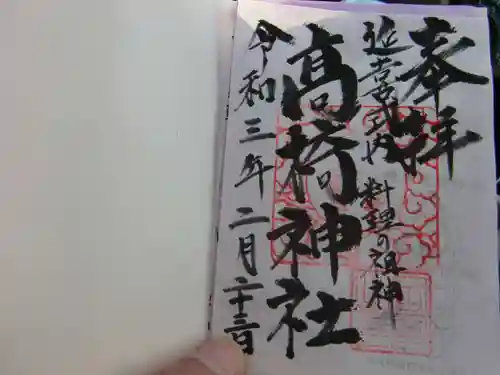 奉拝
延喜式内 料理の祖神
高椅神社
令和三年二月二十三日